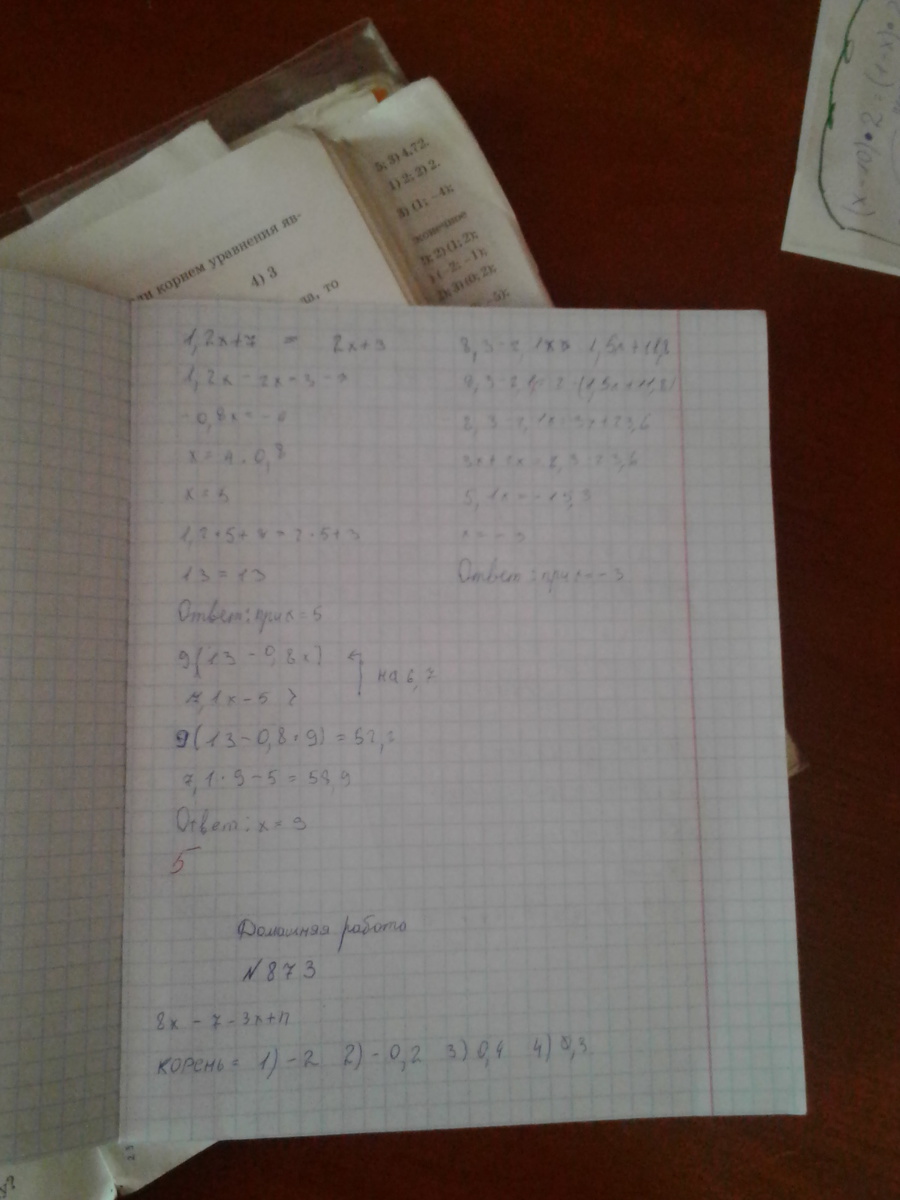 ли корнем уравнения яв-
4) 3
то
5; 3) 4,72.
1) 2; 2) 2.
3) (1; −4);
конечное
2) (1; 2);
(−2; −1);
3) (0; 2);
−5);
(x−10)•2=(1+x)•
1,2x+7 = 2x+3
1,2x − 2x = 3 − 7
−0,8x = −4
x = 4 : 0,8
x = 5
1,2•5+7=2•5+3
13 = 13
Ответ: при x=5
9(13 − 0,8x)
на 6,7
7,1x − 5
9(13−0,8•9) = 52,2
7,1•9−5 = 58,9
Ответ: x = 9
5
1,5x+11,8
8,3−2,1x=2•(1,5x+11,8)
8,3−2,1x=3x+23,6
5,1x=−15,3
x=−3
Ответ: при x=−3
Домашняя работа
№873
8x − 7 − 3x+n
корень = 1) −2 2) −0,2 3) 0,4 4) 0,3